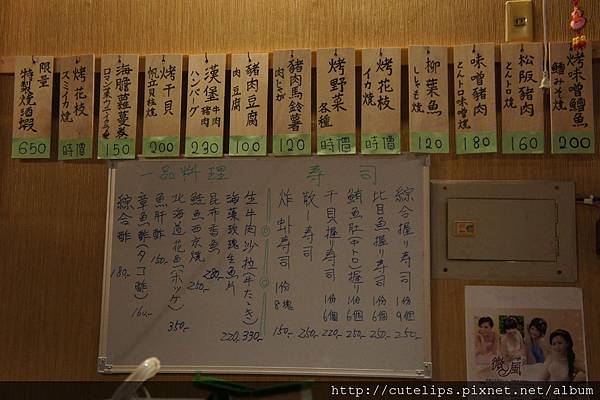 烤味噌鱈魚
鱈みそ焼
200
松阪豬肉
とんトロ焼
160
味噌豬肉
とんトロ味噌焼
180
柳葉魚
ししゃも焼
120
烤花枝
イカ焼
時價
烤野菜
各種
時價
豬肉馬鈴薯
肉じゃが
120
豬肉豆腐
肉豆腐
100
漢堡 牛肉 豬肉
ハンバーグ
230
烤干貝
帆立貝焼
200
海膽蘿蔓菜
150
烤花枝
スミイカ焼
時價
限量
特製燒酒蝦
650
壽司
綜合握り寿司 1份9個 250
比目魚握り寿司 1份6個 250
鮪魚肚(中トロ)握り 1份6個 250
干貝握り寿司 1份6個 220
散し寿司 250
炸虾寿司 1份8塊 150
一品料理
生牛肉沙拉(牛たたき) 330
海藻玫瑰生魚片 220
昆布香魚 280
鮭魚西京燒 250
北海道花魚(ホッケ) 350
魚肝酢 150
章魚酢(タコ酢) 160
綜合酢 180
微風
http://cutelips.pixnet.net/album